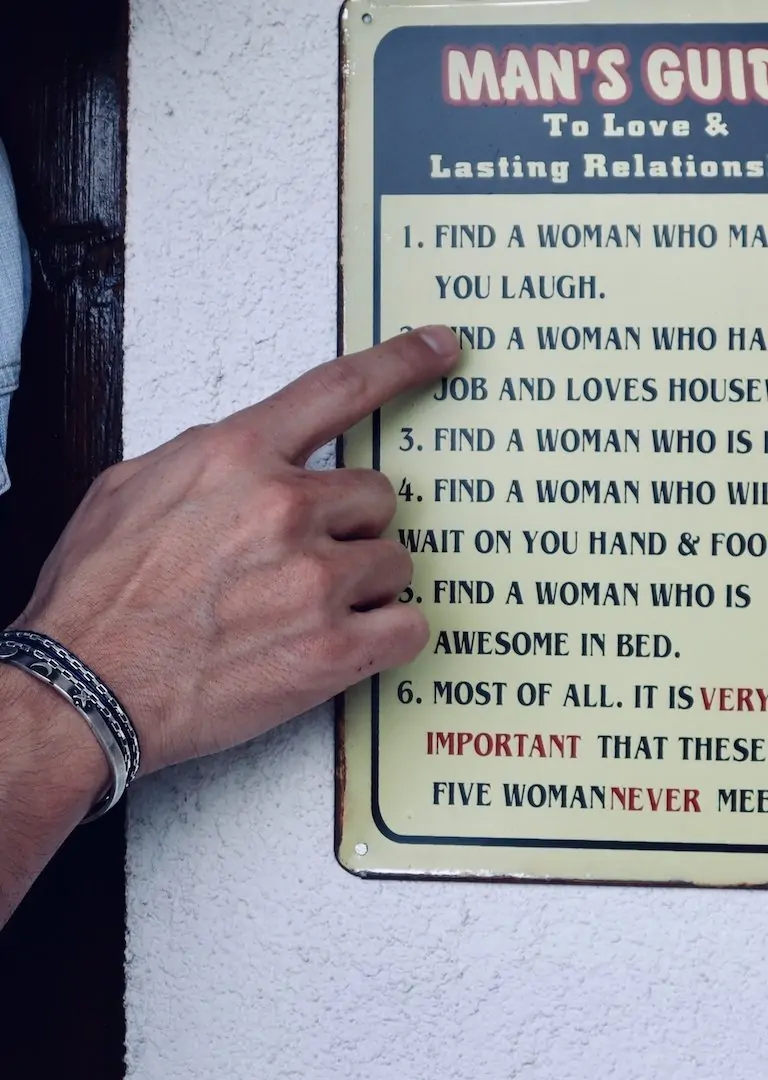 MAN'S GUID
To Love &
Lasting Relations
1. FIND A WOMAN WHO MA
YOU LAUGH.
2. FIND A WOMAN WHO HA
JOB AND LOVES HOUSEW
3. FIND A WOMAN WHO IS
4. FIND A WOMAN WHO WIL
WAIT ON YOU HAND & FOO
5. FIND A WOMAN WHO IS
AWESOME IN BED.
6. MOST OF ALL. IT IS VERY
IMPORTANT THAT THESE
FIVE WOMAN NEVER MEE